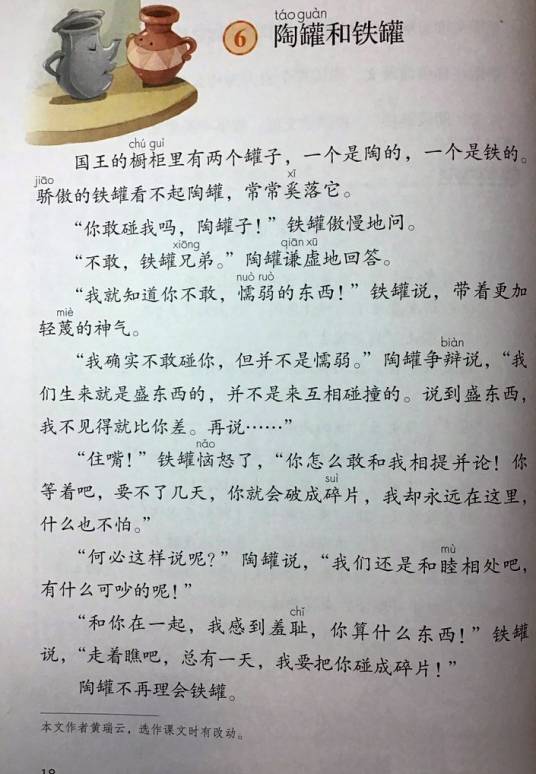 táo guàn
6 陶罐和铁罐
chú guì
国王的橱柜里有两个罐子，一个是陶的，一个是铁的。
jiāo xī
骄傲的铁罐看不起陶罐，常常奚落它。
“你敢碰我吗，陶罐子！”铁罐傲慢地问。
xiōng qiān xū
“不敢，铁罐兄弟。”陶罐谦虚地回答。
nuò ruò
“我就知道你不敢，懦弱的东西！”铁罐说，带着更加
miè
轻蔑的神气。
biàn
“我确实不敢碰你，但并不是懦弱。”陶罐争辩说，“我
们生来就是盛东西的，并不是来互相碰撞的。说到盛东西，
我不见得就比你差。再说……”
nǎo
“住嘴！”铁罐恼怒了，“你怎么敢和我相提并论！你
suì
等着吧，要不了几天，你就会破成碎片，我却永远在这里，
什么也不怕。”
mù
“何必这样说呢？”陶罐说，“我们还是和睦相处吧，
有什么可吵的呢！”
chǐ
“和你在一起，我感到羞耻，你算什么东西！”铁罐
说，“走着瞧吧，总有一天，我要把你碰成碎片！”
陶罐不再理会铁罐。
本文作者黄瑞云，选作课文时有改动。
18